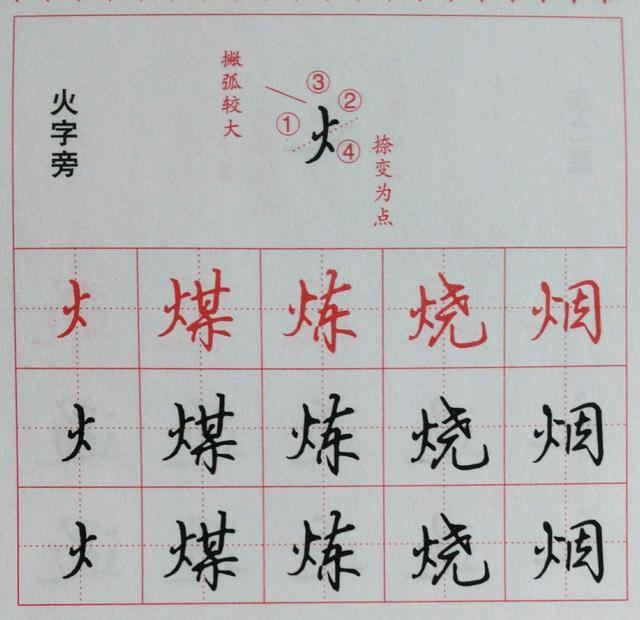 火字旁
撇弧较大
③
②
①
火
④
捺变为点
火 煤 炼 烧 烟
火 煤 炼 烧 烟
火 煤 炼 烧 烟